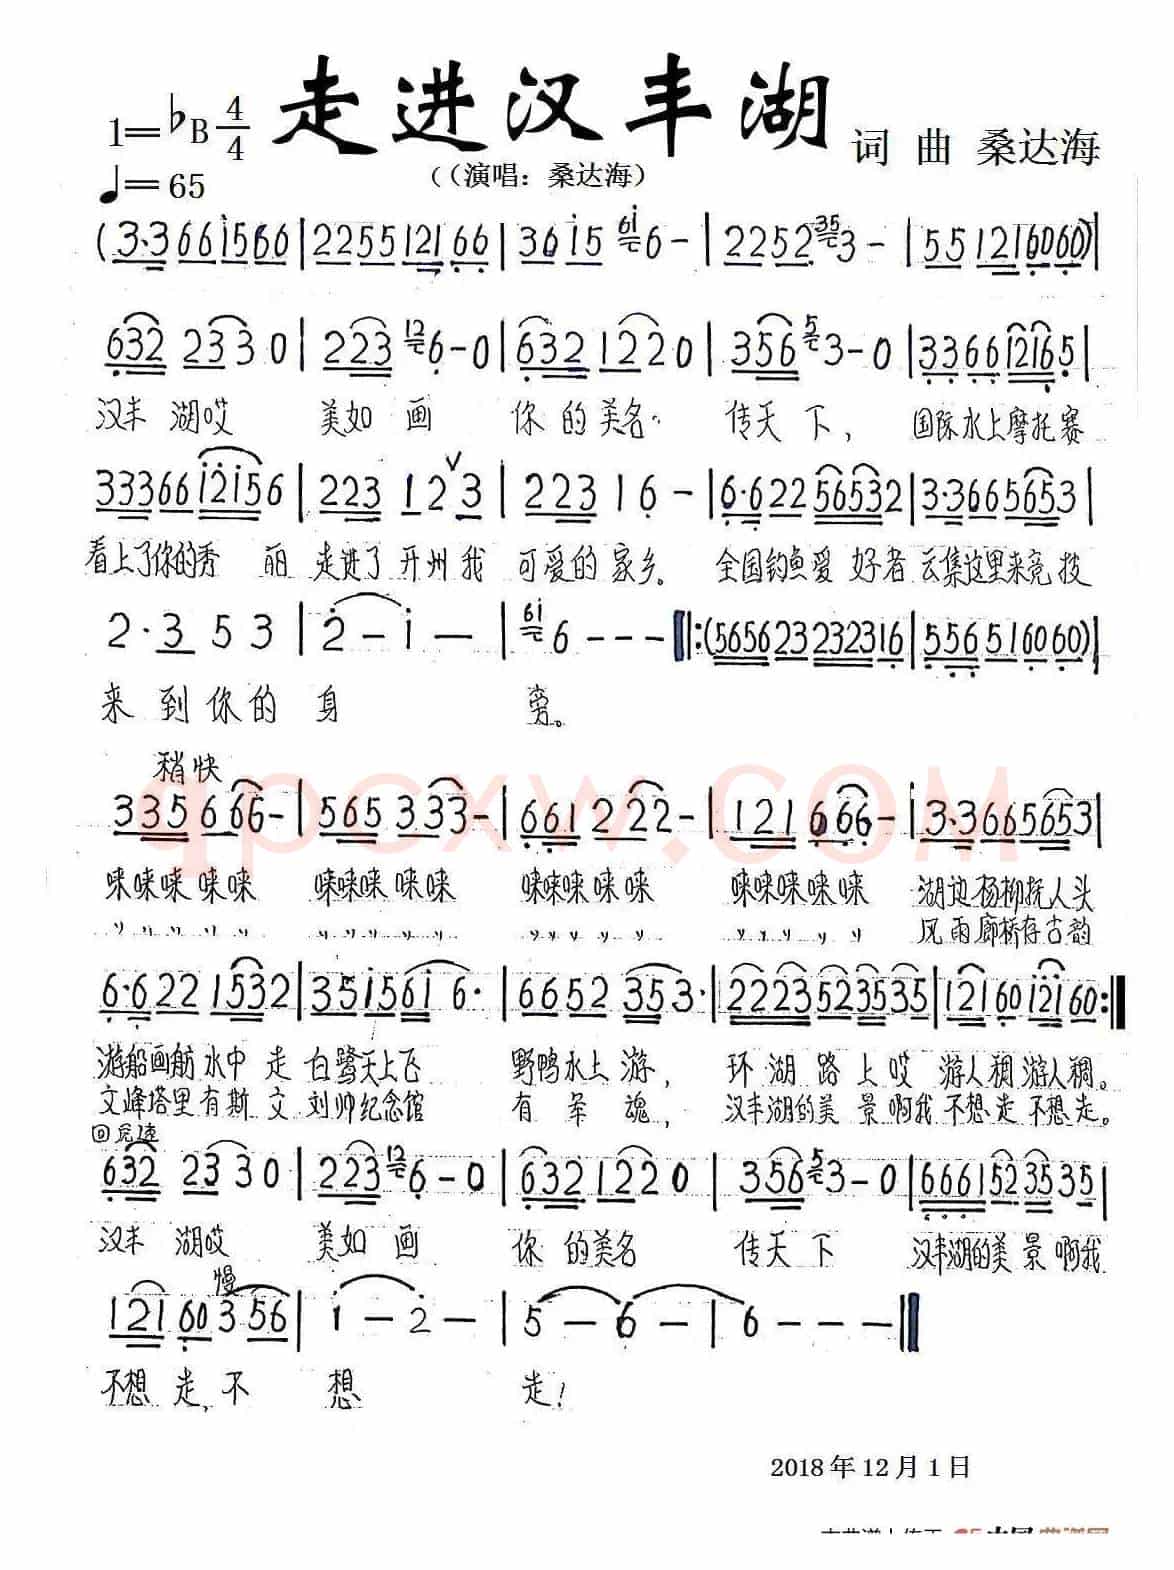 走进汉丰湖
1=♭B 4/4
♩=65
词 曲 桑达海
((演唱：桑达海)
(3·3 66 i5 66 | 22 55 121 66 | 36 i5 6 - | 22 52 3 - | 55 121 60 60) |
632 23 3 0 | 223 6 - 0 | 632 12 2 0 | 356 3 - 0 | 33 66 1216 5 |
汉丰 湖哎 美如 画 你 的 美名 传天 下， 国际水上摩托赛
33366 i2i56 | 223 1 2 3 | 2 23 1 6 - | 6·6 22 56532 | 3·3665653 |
看上了你的秀 丽 走进了 开州 我 可爱的 家乡。 全国钓鱼爱 好者 云集这里来竞技
2· 3 5 3 | 2 - i - | 6 - - - ‖: (5656 23 2323 16 | 556 51 60 60) |
来 到 你 的 身 旁。
稍快
335 6 66 - | 565 3 33 - | 661 2 22 - | 121 6 66 - | 3·3665653 |
唻唻唻 唻 唻 唻唻唻 唻 唻 唻唻唻 唻 唻 唻唻唻 唻 唻 湖边杨柳抚人头
〃 〃 〃 〃 〃 〃 〃 〃 〃 〃 〃 〃 〃 〃 〃 〃 〃 〃 〃 〃 风雨廊桥存古韵
6·6 22 1532 | 35i56i 6· | 6652 35 3· | 2223523535 | 121 60 i2i 60 :‖
游船画舫 水中 走 白鹭天上飞 野鸭水上 游， 环 湖 路 上 哎 游人稠 游人稠。
文峰塔里有斯 文 刘帅纪念馆 有 军 魂， 汉丰湖的美 景啊我 不想走 不想走。
回原速
632 23 3 0 | 223 6 - 0 | 632 12 2 0 | 356 3 - 0 | 6661523535 |
汉丰 湖哎 美如 画 你 的美名 传天 下 汉丰湖的美 景啊我
慢
121 60 3 56 | i - 2 - | 5 - 6 - | 6 - - - ‖
不想 走，不 想 走！
2018年12月1日
qpcxw.com